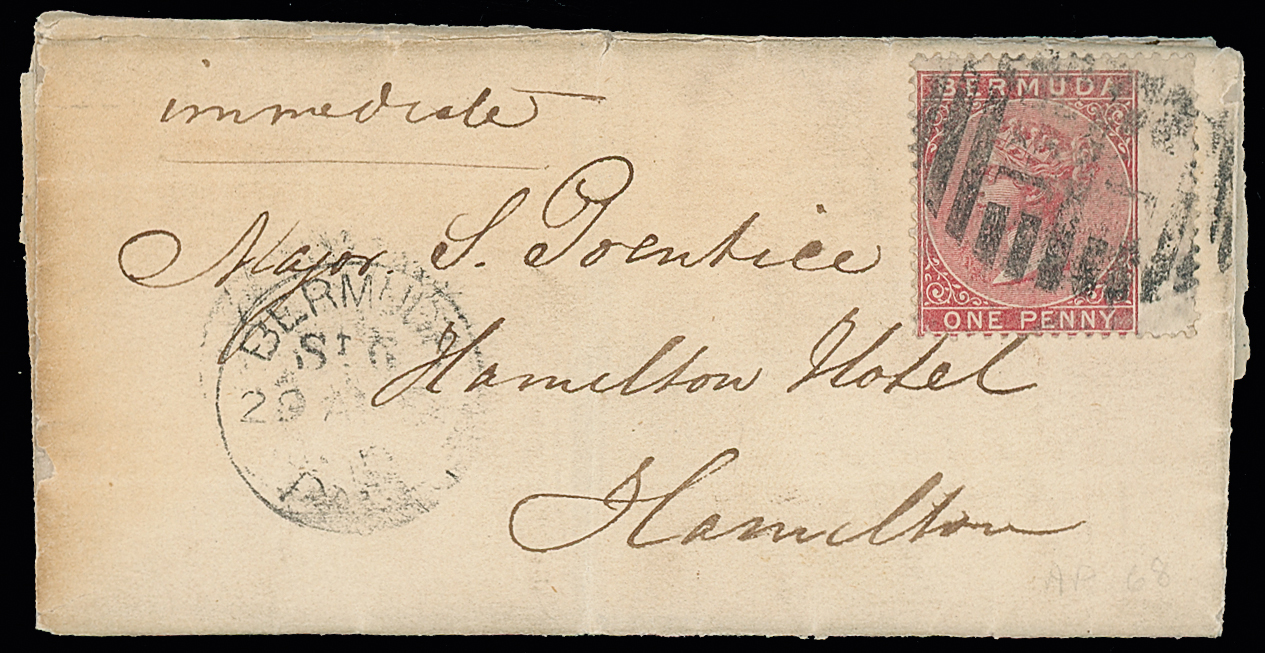 immediate
BERMUDA
Major. S. Prentice
BERMUDA
St 6
29
Hamilton Hotel
ONE PENNY
Hamilton
AP 68